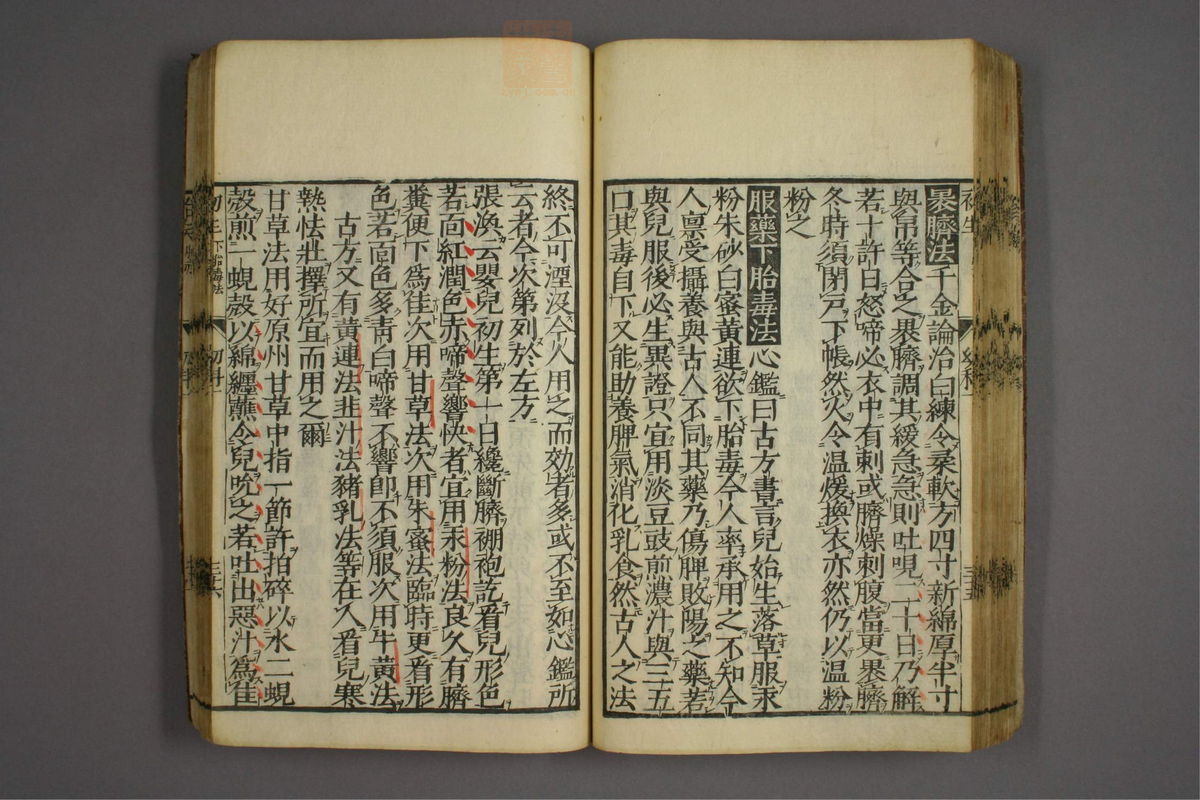 裹臍法千金論治曰練令柔軟方四寸新綿厚半寸
與帛等合之裹臍調其緩急急則吐哯二十日乃解
若十許日怒啼必衣中有刺或臍燥刺腹當更裹臍
冬時須閉戶下帳然火令温煖換衣亦然仍以温粉
粉之
服藥下胎毒法心鑑曰古方書言兒始生落草服汞
粉朱砂白蜜黃連欲下胎毒今人率承用之不知今
人禀受攝養與古人不同其藥乃傷脾敗陽之藥若
與兒服後必生異證只宜用淡豆豉煎濃汁與三五
口其毒自下又能助養脾氣消化乳食然古人之法
終不可湮沒今人用之而効者多或不至如心鑑所
云者今次第列於左方
張渙云嬰兒初生第一日纔斷臍綳袍訖看兒形色
若面紅潤色赤啼聲響快者宜用汞粉法良久有臍
糞便下爲佳次用甘草法次用朱蜜法臨時更看形
色若面色多青曰啼聲不響卽不須服次用牛黃法
古方又有黃連法韭汁法豬乳法等在人看兒寒
熱怯壯擇所宜而用之爾
甘草法用好原州甘草中指一節許拍碎以水二蜆
殼煎一蜆殼以綿纏蘸令兒吮之若吐出惡汁爲佳
初生 下胎毒法